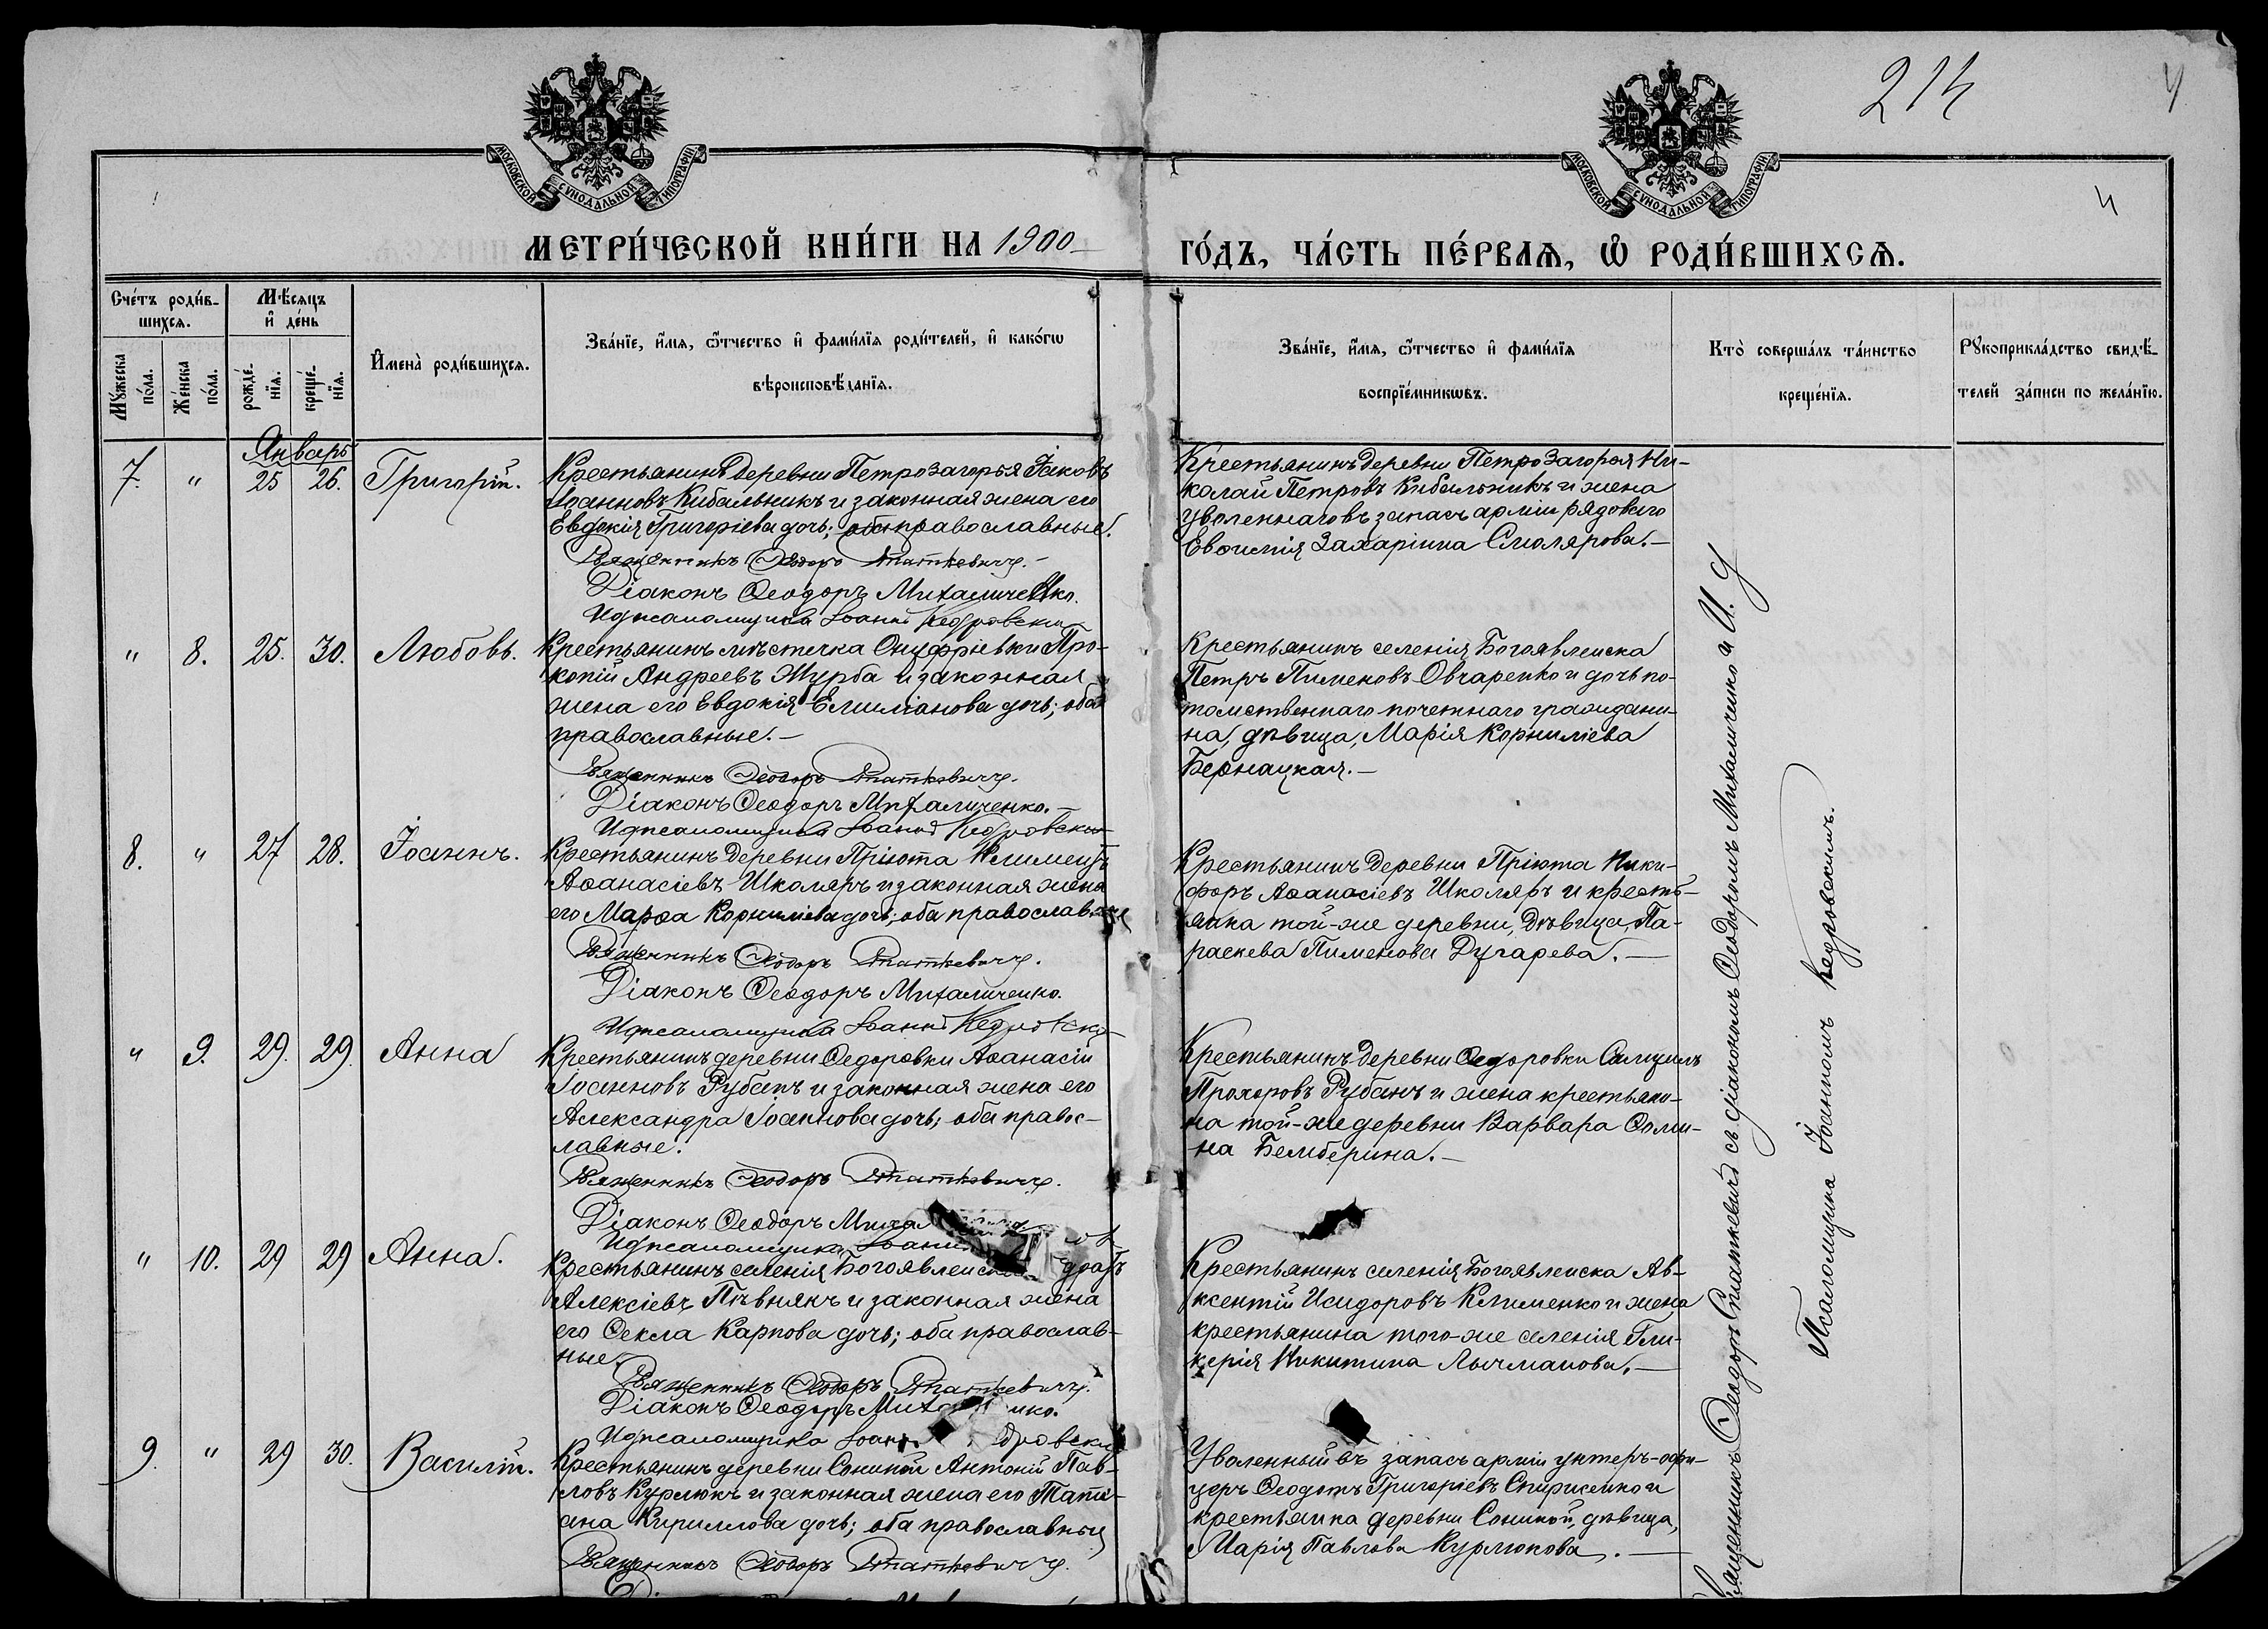 214
4
4
МОСКОВСКОЙ СѴНОДАЛЬНОЙ ТИПОГРАФІИ
МОСКОВСКОЙ СѴНОДАЛЬНОЙ ТИПОГРАФІИ
МЕТРИ́ЧЕСКОЙ КНИ́ГИ НА 1900
ГО́ДЪ, ЧА́СТЬ ПЕ́РВАѦ, Ѡ҆ РОДИ́ВШИХСѦ.
Сче́тъ роди́в-
шихсѧ.
Мѣ́сѧцъ
и҆ де́нь
Мꙋ́жеска
по́ла.
Же́нска
по́ла.
рожде́-
нїѧ.
креще́-
нїѧ.
И҆мена̀ роди́вшихсѧ.
Зва́нїе, и҆́мѧ, ѻ҆́тчество и҆ фами́лїѧ роди́телей, и҆ како́гѡ
вѣроисповѣ́данїѧ.
Зва́нїе, и҆́мѧ, ѻ҆́тчество и҆ фами́лїѧ
воспрїе́мникѡвъ.
Кто̀ соверша́лъ та́инство
креще́нїѧ.
Рꙋкоприкла́дство свидѣ́-
телей за́писи по жела́нїю.
Январь
7. " 25 26. Григорій.
Крестьянинъ деревни Петрозагорья Іаковъ
Іоанновъ Кибальникъ и законная жена его
Евдокія Григоріева дочь; оба православные.
Священникъ Ѳеодоръ Спаткевичъ.
Діаконъ Ѳеодоръ Михаличенко.
И д псаломщика Іоаннъ Кедровскій
Крестьянинъ деревни Петрозагорья Ни-
колай Петровъ Кибальникъ и жена
уволеннаго въ запасъ арміи рядового
Евфимія Захаріина Смолярова.
" 8. 25. 30. Любовь.
Крестьянинъ мѣстечка Онуфріевки Про-
копій Андреевъ Журба и законная
жена его Евдокія Емиліанова дочь; оба
православные.
Священникъ Ѳеодоръ Спаткевичъ.
Діаконъ Ѳеодоръ Михаличенко.
И д псаломщика Іоаннъ Кедровскій
Крестьянинъ селенія Богоявленска
Петръ Пименовъ Овчаренко и дочь по-
томственнаго почетнаго гражданина-
на, дѣвица, Марія Корниліева
Бернацкая.
8. " 27 28. Іоаннъ.
Крестьянинъ деревни Пріюта Климентъ
Аѳанасіевъ Школяръ и законная жена
его Марѳа Корниліева дочь; оба православные
Священникъ Ѳеодоръ Спаткевичъ.
Діаконъ Ѳеодоръ Михаличенко.
И д псаломщика Іоаннъ Кедровскій
Крестьянинъ деревни Пріюта Ники-
форъ Аѳанасіевъ Школяръ и кресть-
янка той-же деревни, дѣвица, Па-
раскева Пименова Дугарева.
" 9. 29. 29. Анна
Крестьянинъ деревни Ѳедоровки Аѳанасій
Іоанновъ Рубанъ и законная жена его
Александра Іоаннова дочь; оба правос-
лавные.
Священникъ Ѳеодоръ Спаткевичъ.
Діаконъ Ѳеодоръ Миха
И д псаломщика Іоаннъ
Крестьянинъ деревни Ѳедоровки Самуилъ
Прохоровъ Рубанъ и жена крестьяни-
на той-же деревни Варвара Ѳоми-
на Бемберина.
" 10. 29 29 Анна.
Крестьянинъ селенія Богоявленска
Алексіевъ Пѣвнякъ и законная жена
его Ѳекла Карпова дочь; оба православ-
ные.
Священникъ Ѳеодоръ Спаткевичъ.
Діаконъ Ѳеодоръ Миха нко.
И д псаломщика Іоаннъ дровскій
Крестьянинъ селенія Богоявленска Ав-
ксентій Исидоровъ Клименко и жена
крестьянина того-же селенія Гли-
керія Никитина Лычманова.
9. " 29 30. Василій.
Крестьянинъ деревни Сониной Антоній Пав-
ловъ Курлюкъ и законная жена его Тати-
ана Кириллова дочь; оба православные
Священникъ Ѳеодоръ Спаткевичъ.
Уволенный въ запасъ арміи унтеръ-офи-
церъ Ѳеодотъ Григоріевъ Спирисенко и
крестьянка деревни Сониной, дѣвица,
Марія Павлова Курлюкова.
Священникъ Ѳеодоръ Спаткевичъ съ діакономъ Ѳеодоромъ Михаличенко и И. д
Псаломщика Іоанномъ Кедровскимъ.